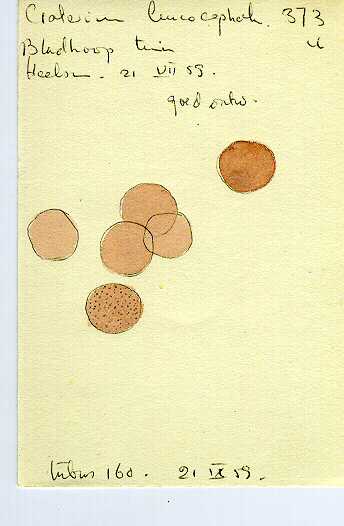 Craterium leucocephal. 373
Bladhoop tuin
Heelsum. 21 VII 59.
goed ontw.
tubus 160. 21 IX 59.